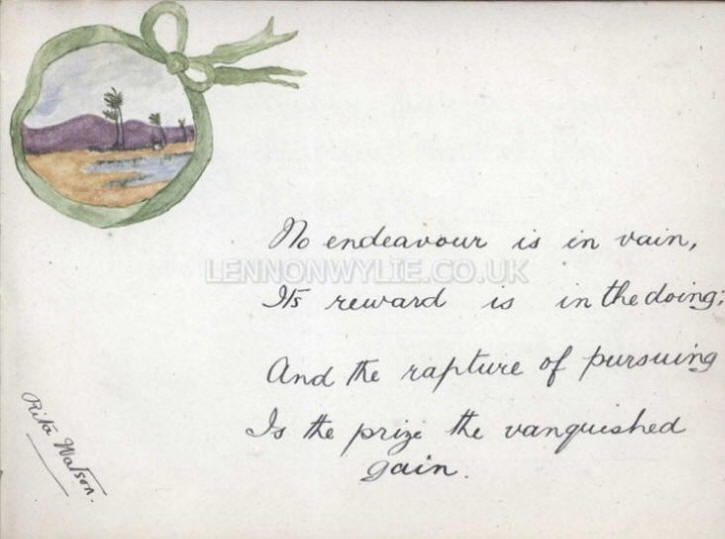 No endeavour is in vain,
LENNONWYLIE.CO.UK
Its reward is in the doing;
And the rapture of pursuing
Is the prize the vanquished
gain.
Rita Watson.